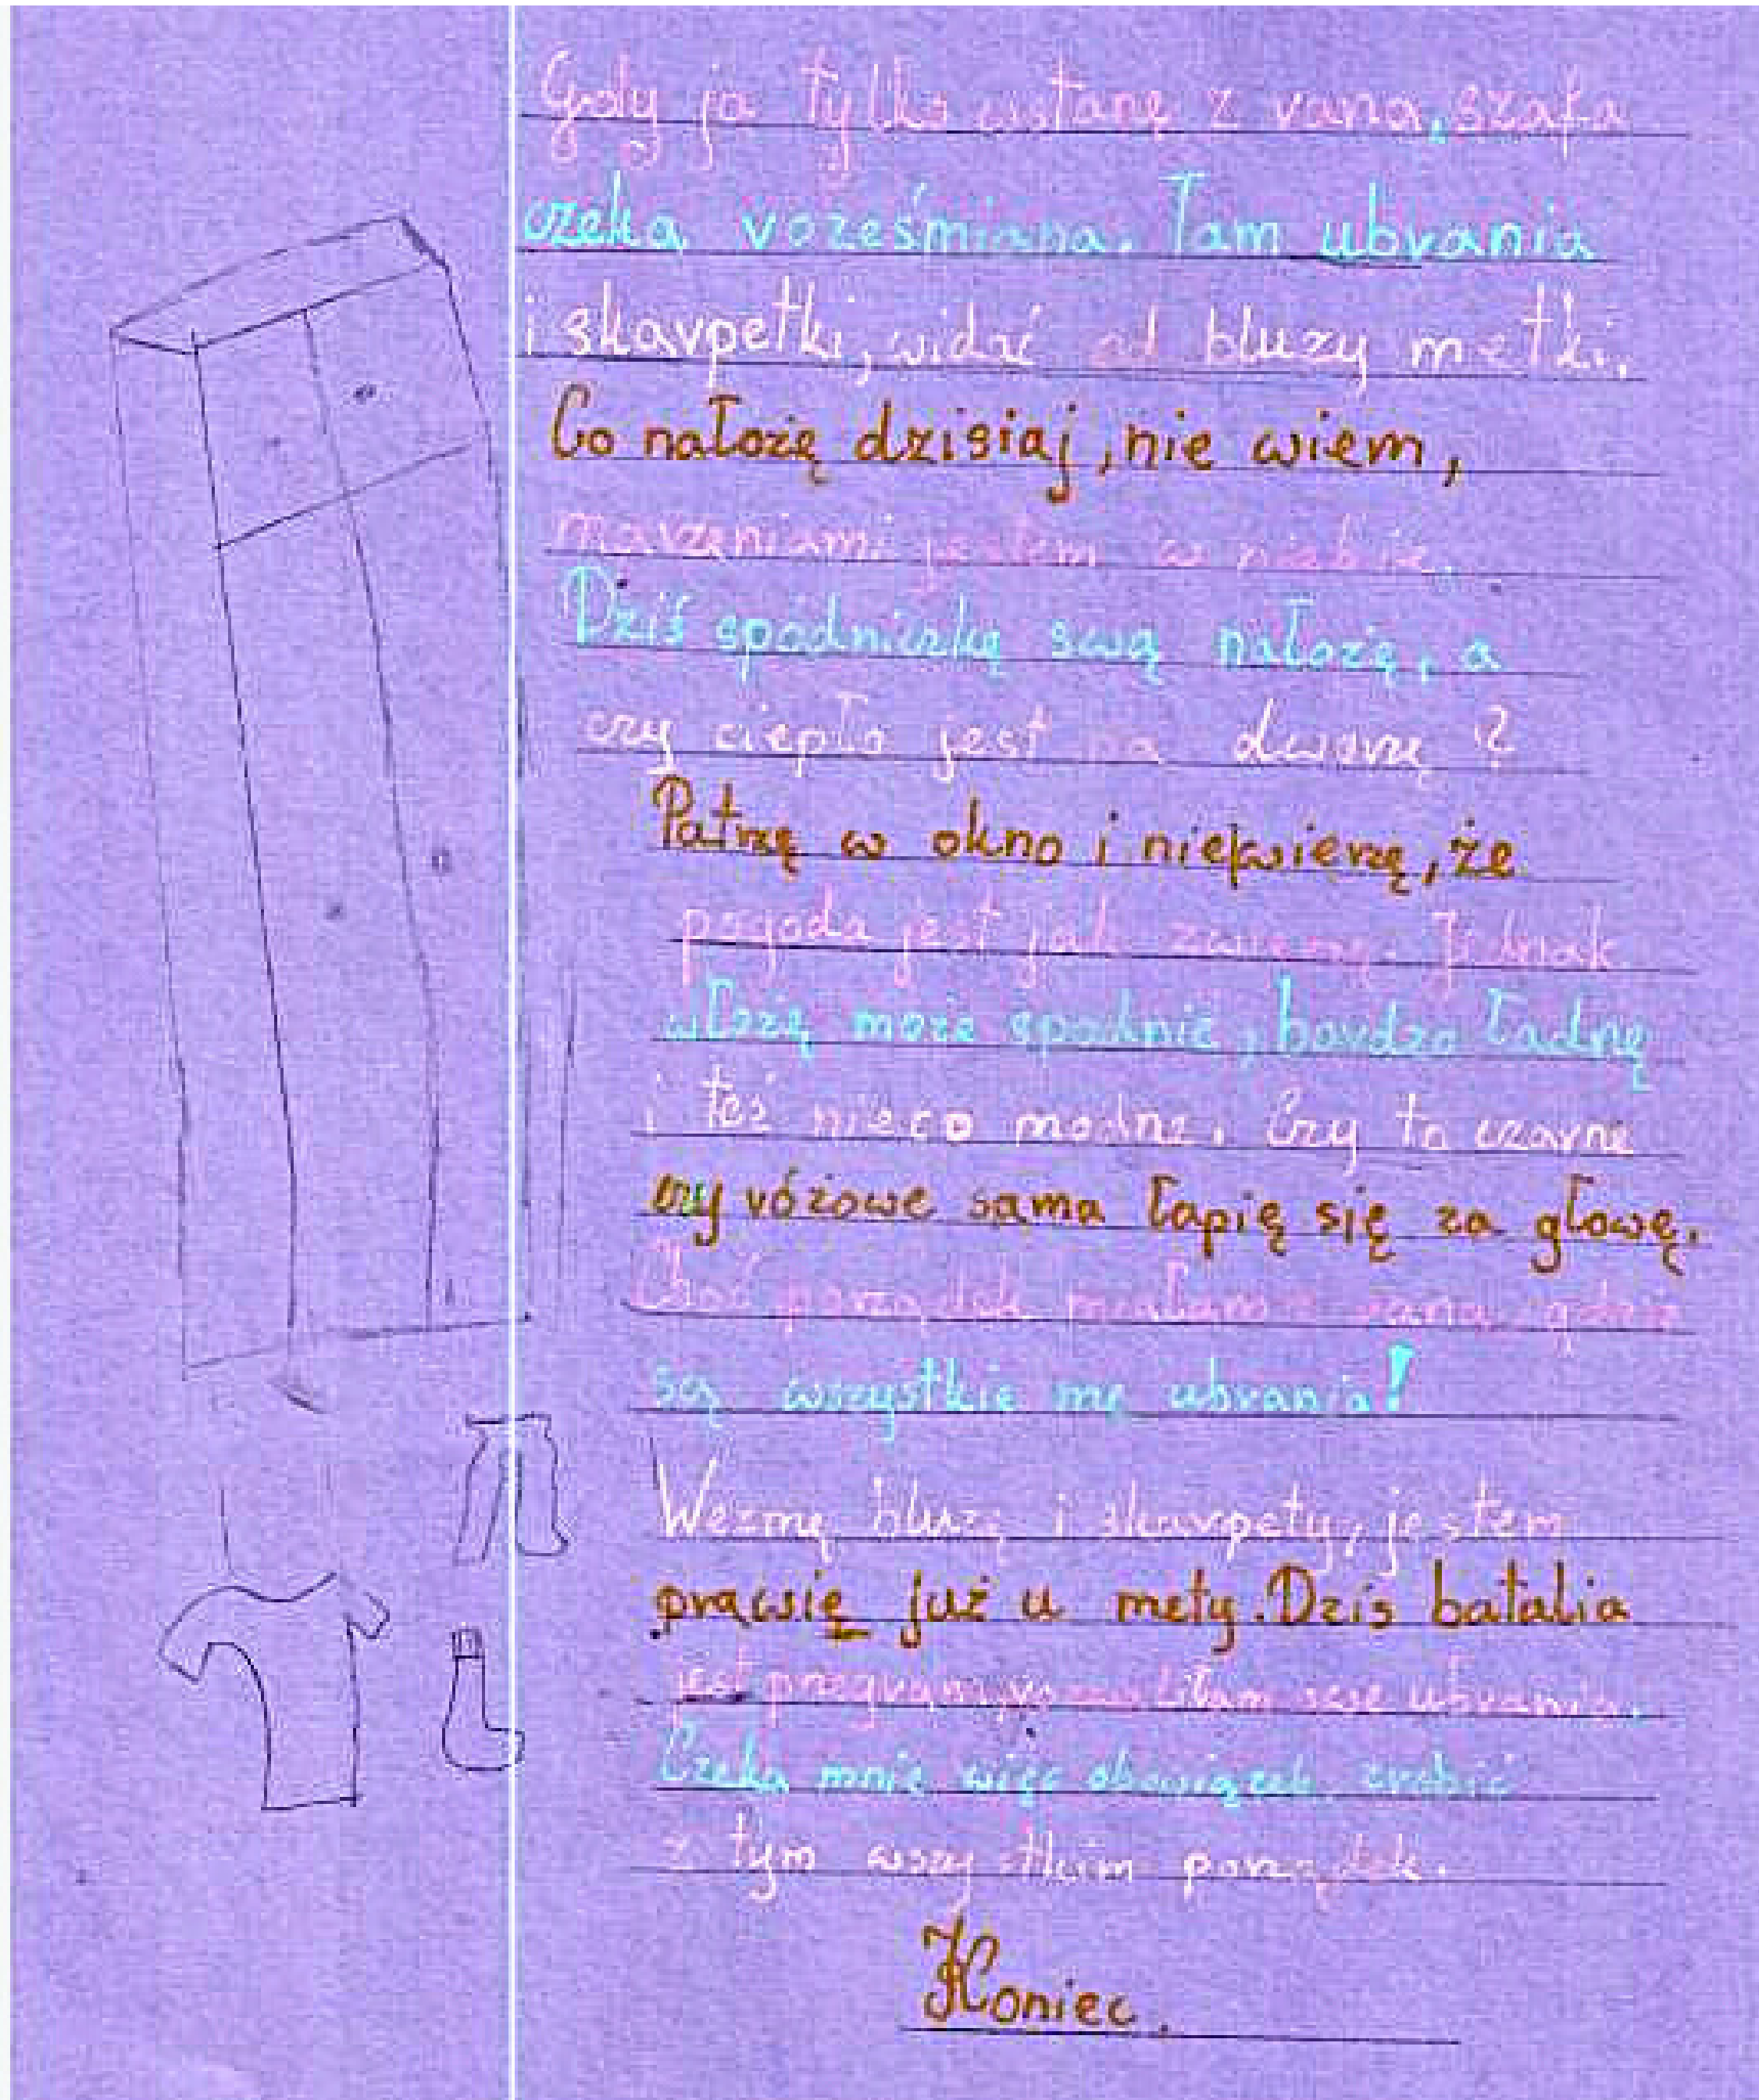 Gdy ja tylko wstanę z rana, szafa
czeka roześmiana. Tam ubrania
i skarpetki, widać od bluzy metki.
Co nałożę dzisiaj, nie wiem,
marzeniami jestem w niebie.
Dziś spódniczkę swą nałożę, a
czy ciepło jest na dworzę?
Patrzę w okno i nie|wierzę, że
pogoda jest jak zwierzę. Jednak
włożę może spodnie, bardzo ładnę
i też nieco modne. Czy to czarne
czy różowe sama łapię się za głowę.
Choć porządek miałam z rana, gdzie
są wszystkie me ubrania!
Wezmę bluzę i skarpety, jestem
prawsię już u mety. Dziś batalia
jest przegrana, rozwaliłam swe ubrania.
Czeka mnie więc obowiązek, zrobić
z tym wszystkim porządek.
Koniec.